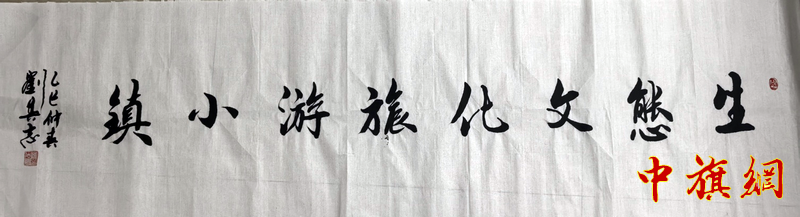 生態文化旅游小鎮
乙巳仲春
中旗網